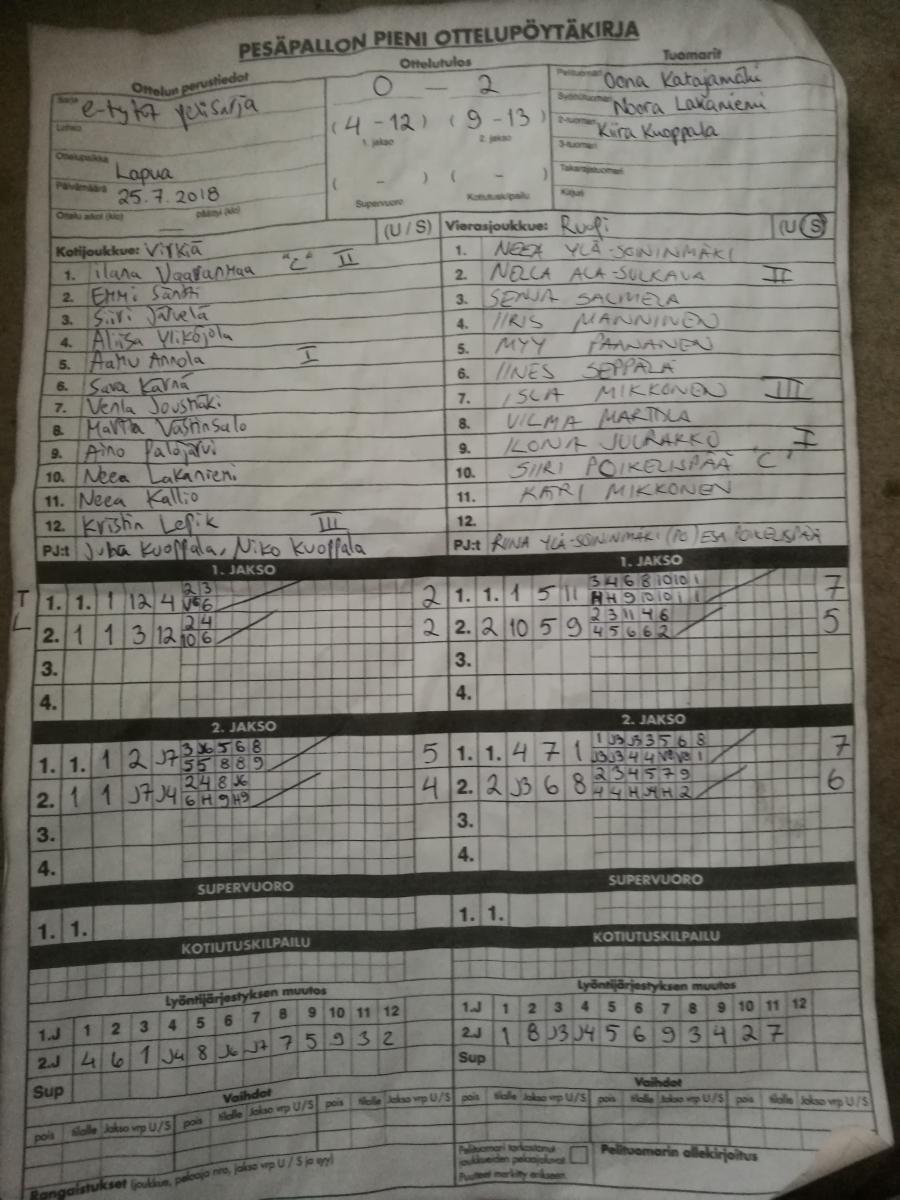 PESÄPALLON PIENI OTTELUPÖYTÄKIRJA
Ottelun perustiedot
Sarja e-tytöt yösisarja
Lohko
Ottelupaikka Lapua
Päivämäärä 25.7.2018
Ottelu alkoi (klo) — päättyi (klo)
Ottelutulos
0 — 2
(4 - 12) (9 - 13)
1. jakso 2. jakso
( - ) ( - )
Supervuoro Kotiutuskilpailu
Tuomarit
Pelituomari Oona Katajamäki
Syöttötuomari Noora Lakaniemi
2-tuomari Kiira Kuoppala
3-tuomari
Takarajatuomari
Kirjuri
Kotijoukkue: Virkiä (U / S)
1. Ilana Vaaranmaa "C" II
2. Emmi Säntti
3. Siiri Järvelä
4. Aliisa Ylikojola
5. Aamu Annola I
6. Sara Kärnä
7. Venla Jousmäki
8. Martta Västinsalo
9. Aino Palojärvi
10. Neea Lakaniemi
11. Neea Kallio
12. Kristin Lepik III
PJ:t Juha Kuoppala, Niko Kuoppala
Vierasjoukkue: Ruofi (U / S)
1. NEEA YLÄ-SOININMÄKI
2. NELLA ALA-SULKAVA II
3. SENJA SALMELA
4. IIRIS MANNINEN
5. MYY PAANANEN
6. IINES SEPPÄLÄ
7. ISLA MIKKONEN III
8. VILMA MARTOLA
9. ILONA JUURAKKO I
10. SIIRI POIKELISPÄÄ "C"
11. KARI MIKKONEN
12.
PJ:t RIINA YLÄ-SOININMÄKI (PJ) ESA POIKELISPÄÄ
1. JAKSO
T 1. 1. 1 12 4 2 3 2
V6 6
L 2. 1 1 3 12 2 4 2
10 6
3.
4.
1. JAKSO
1. 1. 1 5 11 3 4 6 8 10 10 1 7
H H 9 10 10 1 1
2. 2 10 5 9 2 3 11 4 6 5
4 5 6 6 2
3.
4.
2. JAKSO
1. 1. 1 2 J7 3 J6 5 6 8 5
5 5 8 8 9
2. 1 1 J7 J4 2 4 8 J6 4
6 H 9 H9
3.
4.
2. JAKSO
1. 1. 4 7 1 1 J3 J3 3 5 6 8 7
J3 J3 4 4 V8 V8 1
2. 2 J3 6 8 2 3 4 5 7 9 6
4 4 H J4 H 2
3.
4.
SUPERVUORO
1. 1.
SUPERVUORO
1. 1.
KOTIUTUSKILPAILU
KOTIUTUSKILPAILU
Lyöntijärjestyksen muutos
1.J 1 2 3 4 5 6 7 8 9 10 11 12
2.J 4 6 1 J4 8 J6 J7 7 5 9 3 2
Sup
Lyöntijärjestyksen muutos
1.J 1 2 3 4 5 6 7 8 9 10 11 12
2.J 1 8 J3 J4 5 6 9 3 4 2 7
Sup
Vaihdot
pois tilalle Jakso vrp U/S pois tilalle Jakso vrp U/S pois tilalle Jakso vrp U/S
Vaihdot
pois tilalle Jakso vrp U/S pois tilalle Jakso vrp U/S pois tilalle Jakso vrp U/S
Rangaistukset (joukkue, pelaaja nro, jakso vrp U / S ja syy)
Pelituomari tarkastanut
joukkueiden pelaajaluvat
Puutteet merkitty erikseen.
Pelituomarin allekirjoitus